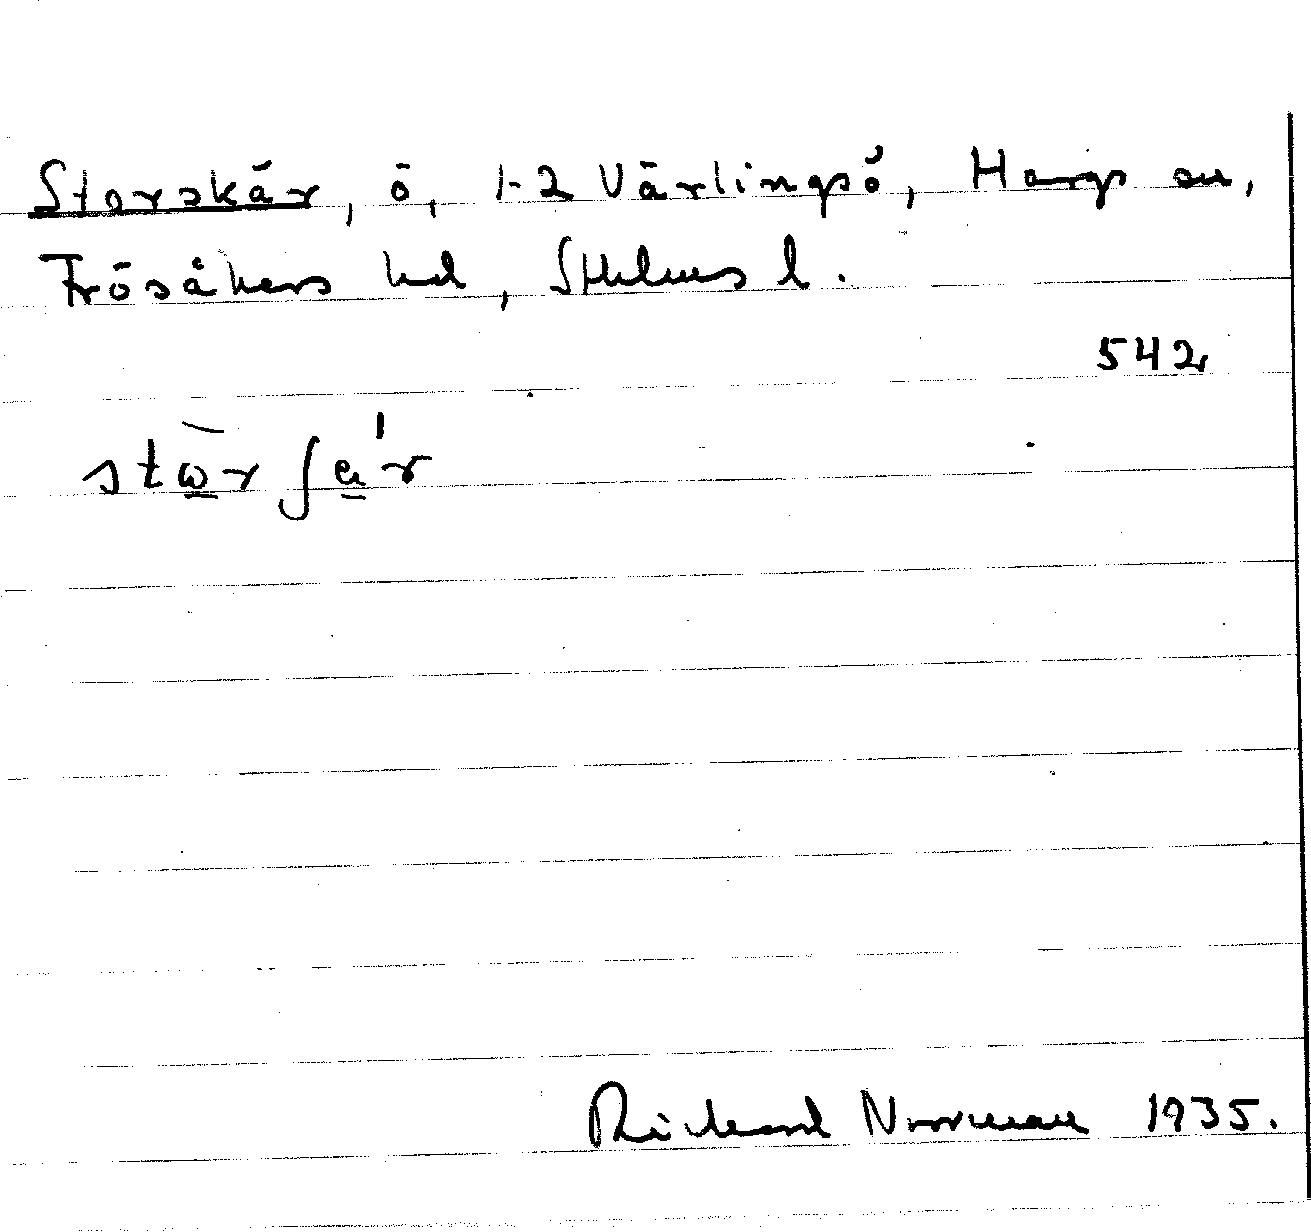 Storskär, ö, 1-2 Värlingsö, Hargs sn,
Frösåkers hd, Sthlms l.
542
stω̲̄r ʃa̲'r
Rickard Norrman 1935.